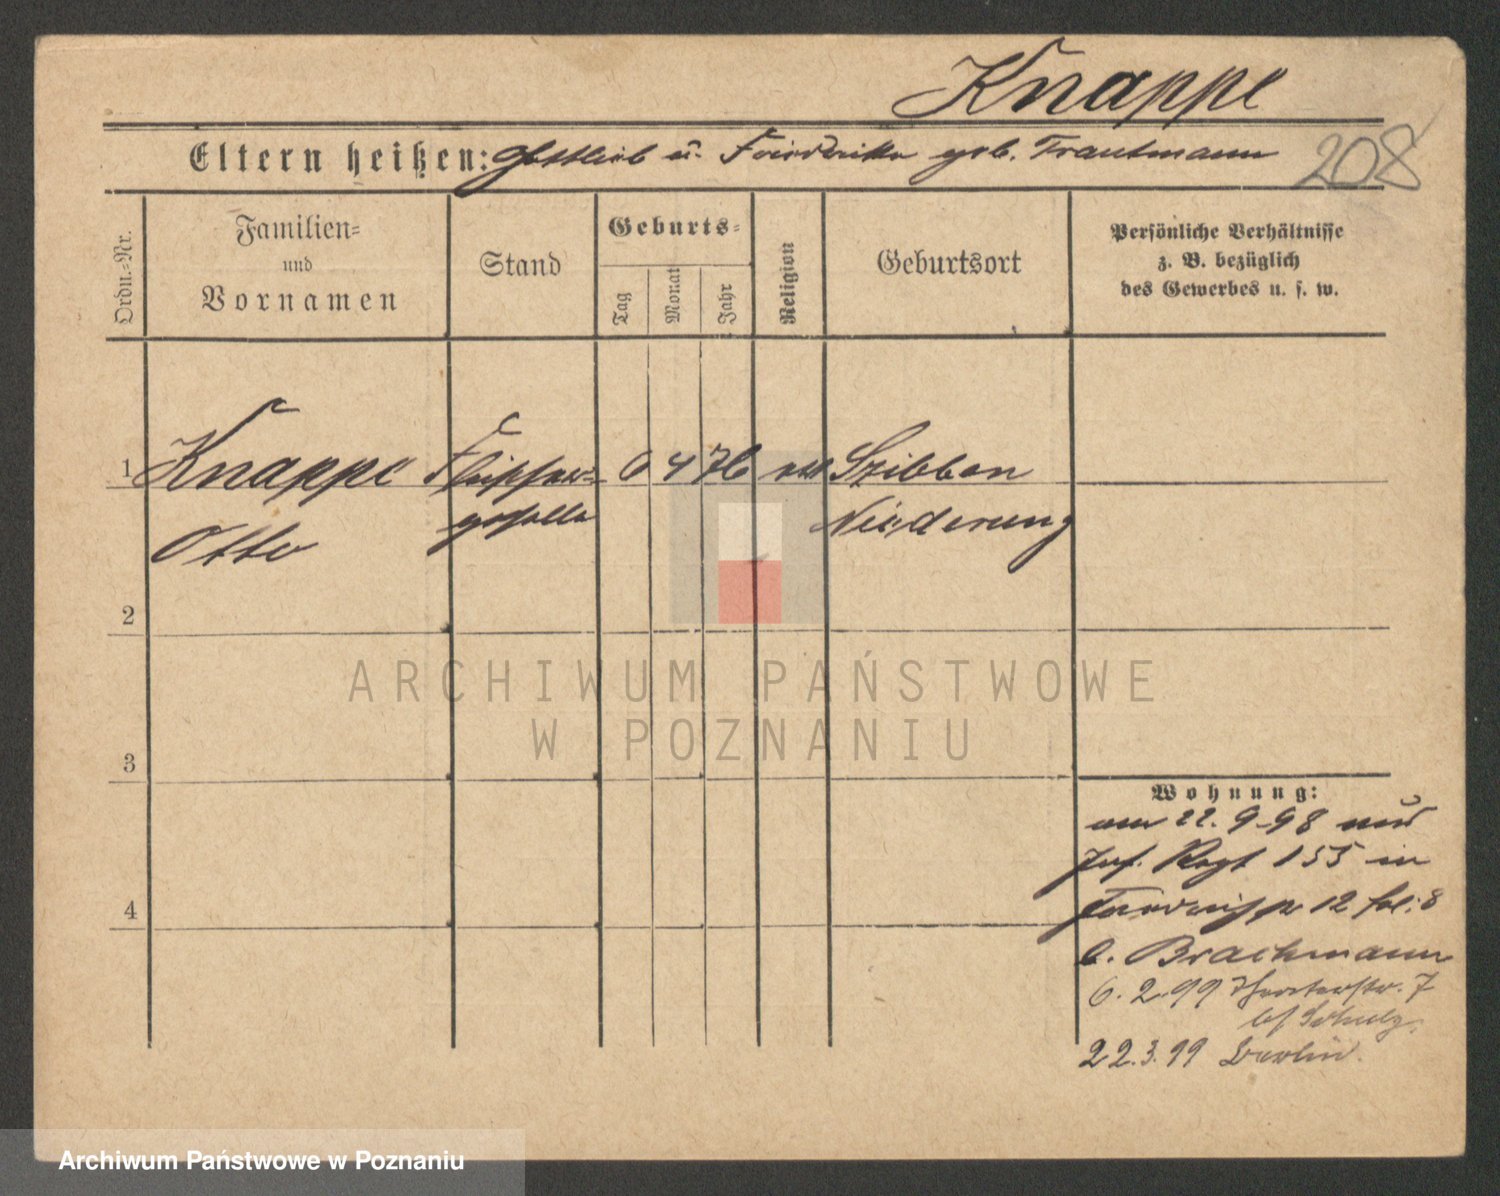 Knappe
Eltern heißen: Gottlieb u. Friederike geb. Trautmann
208
Ordn.-Nr.
Familien- und Vornamen
Stand
Geburts-
Tag
Monat
Jahr
Religion
Geburtsort
Persönliche Verhältnisse
z. B. bezüglich
des Gewerbes u. s. w.
1 Knappe Fleischer- 6 4 76 Szibben
geselle Niederung
Otto
2
3
4
Wohnung:
am 22. 9. 98
Inf. Regt 155 in
12
b. Brackmann
6. 2. 99 7
b/ Schulz.
22. 3. 99 Berlin.
ARCHIWUM PAŃSTWOWE
W POZNANIU
Archiwum Państwowe w Poznaniu